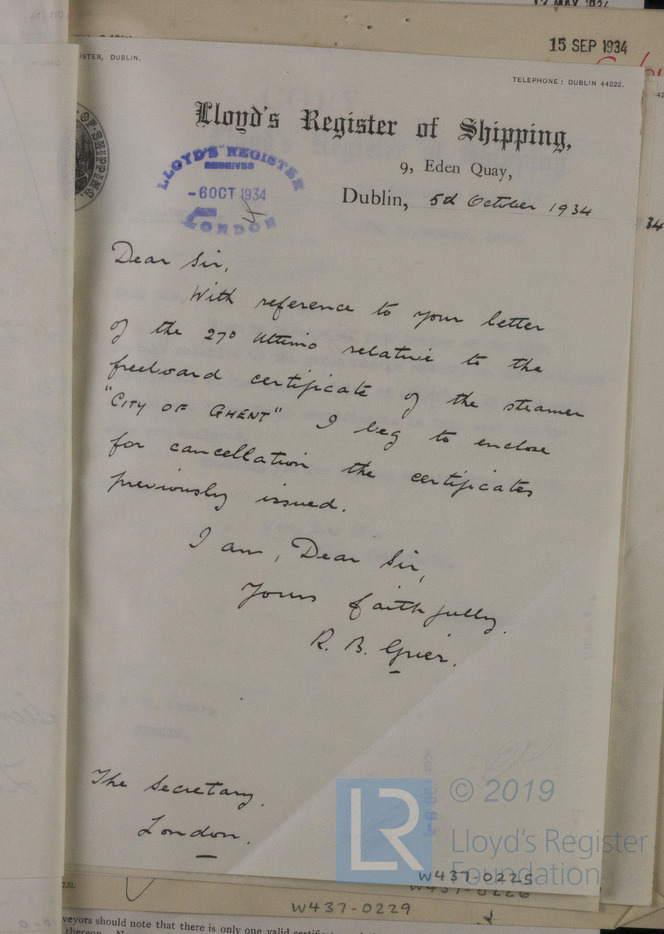 15 SEP 1934
STER, DUBLIN.
TELEPHONE: DUBLIN 44222.
Lloyd's Register of Shipping,
9, Eden Quay,
Dublin, 5th October 1934
LLOYD'S REGISTER
RECEIVED
-6 OCT 1934
LONDON
OF SHIPPING
34
Dear Sir,
With reference to your letter
of the 270 ultimo relative to the
freeboard certificate of the steamer
"CITY OF GHENT" I beg to enclose
for cancellation the certificates
previously issued.
I am, Dear Sir,
Yours faithfully,
R. B. Grier.
The Secretary.
London.
© 2019
LR
Lloyd's Register
Foundation
W437-0225
W437-0226
W437-0229
veyors should note that there is only one valid
thereon.